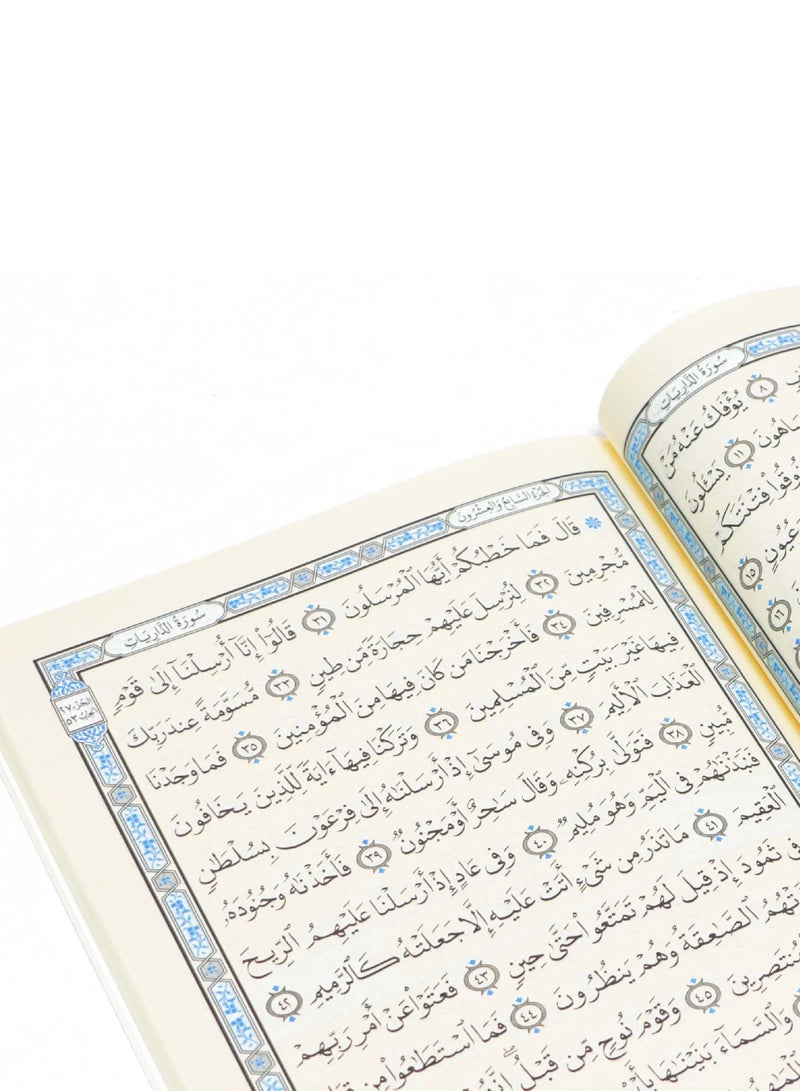 سُورَةُ الذَّارِيَاتِ
٨ يُؤْفَكُ عَنْهُ مَنْ
١١ يَسْـَٔلُونَ
فِتْنَتَكُمْ
١٥
١٦
الجُزْءُ السَّابِعُ وَالعِشْرُونَ
سُورَةُ الذَّارِيَاتِ
الجزء ٢٧
الحزب ٥٣
۞ قَالَ فَمَا خَطْبُكُمْ أَيُّهَا ٱلْمُرْسَلُونَ ٣١ قَالُوٓا۟ إِنَّآ أُرْسِلْنَآ إِلَىٰ قَوْمٍ
مُّجْرِمِينَ ٣٢ لِنُرْسِلَ عَلَيْهِمْ حِجَارَةً مِّن طِينٍ ٣٣ مُّسَوَّمَةً عِندَ رَبِّكَ
لِلْمُسْرِفِينَ ٣٤ فَأَخْرَجْنَا مَن كَانَ فِيهَا مِنَ ٱلْمُؤْمِنِينَ ٣٥ فَمَا وَجَدْنَا
فِيهَا غَيْرَ بَيْتٍ مِّنَ ٱلْمُسْلِمِينَ ٣٦ وَتَرَكْنَا فِيهَآ ءَايَةً لِّلَّذِينَ يَخَافُونَ
ٱلْعَذَابَ ٱلْأَلِيمَ ٣٧ وَفِى مُوسَىٰٓ إِذْ أَرْسَلْنَـٰهُ إِلَىٰ فِرْعَوْنَ بِسُلْطَـٰنٍ
مُّبِينٍ ٣٨ فَتَوَلَّىٰ بِرُكْنِهِۦ وَقَالَ سَـٰحِرٌ أَوْ مَجْنُونٌ ٣٩ فَأَخَذْنَـٰهُ وَجُنُودَهُۥ
فَنَبَذْنَـٰهُمْ فِى ٱلْيَمِّ وَهُوَ مُلِيمٌ ٤٠ وَفِى عَادٍ إِذْ أَرْسَلْنَا عَلَيْهِمُ ٱلرِّيحَ
ٱلْعَقِيمَ ٤١ مَا تَذَرُ مِن شَىْءٍ أَتَتْ عَلَيْهِ إِلَّا جَعَلَتْهُ كَٱلرَّمِيمِ ٤٢
ثَمُودَ إِذْ قِيلَ لَهُمْ تَمَتَّعُوا۟ حَتَّىٰ حِينٍ ٤٣ فَعَتَوْا۟ عَنْ أَمْرِ رَبِّهِمْ
ٱلصَّـٰعِقَةُ وَهُمْ يَنظُرُونَ ٤٤ فَمَا ٱسْتَطَـٰعُوا۟ مِن
مُنتَصِرِينَ ٤٥ وَقَوْمَ نُوحٍ مِّن قَبْلُ إِنَّهُمْ
وَٱلسَّمَآءَ بَنَيْنَـٰهَا